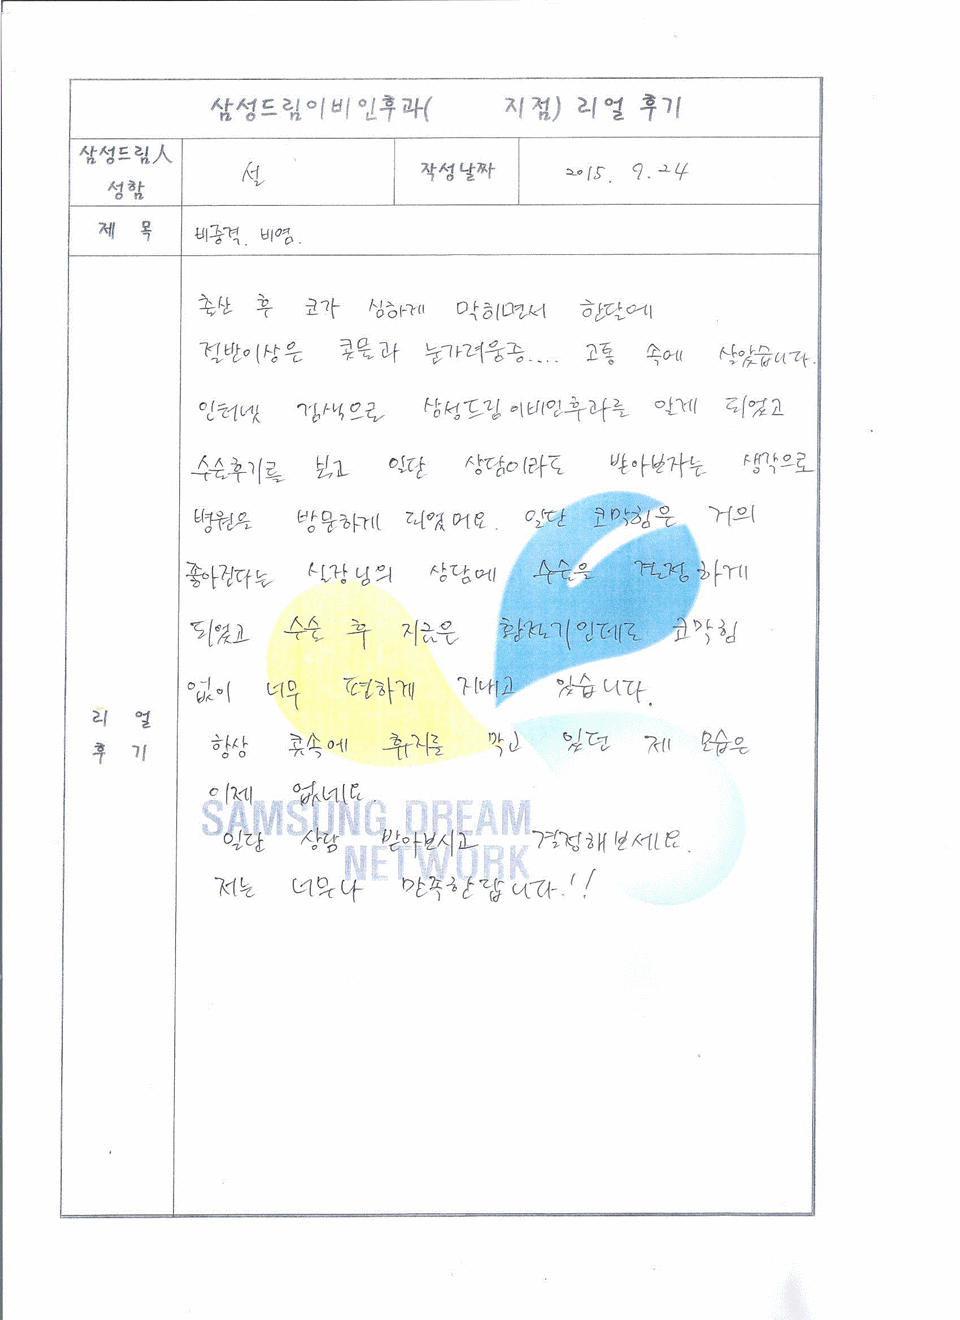 삼성드림이비인후과( 지점) 리얼 후기
삼성드림人
성함
설
작성날짜
2015. 9. 24
제 목
비중격. 비염.
리 얼
후 기
출산 후 코가 심하게 막히면서 한달에
절반이상은 콧물과 눈가려움증.... 고통 속에 살았습니다.
인터넷 검색으로 삼성드림이비인후과를 알게 되었고
수술후기를 보고 일단 상담이라도 받아보자는 생각으로
병원을 방문하게 되었어요. 일단 코막힘은 거의
좋아진다는 실장님의 상담에 수술을 결정하게
되었고 수술 후 지금은 환절기인데도 코막힘
없이 너무 편하게 지내고 있습니다.
항상 콧속에 휴지를 막고 있던 제 모습은
이제 없네요.
일단 상담 받아보시고 결정해보세요.
저는 너무나 만족한답니다.!!
SAMSUNG DREAM
NETWORK